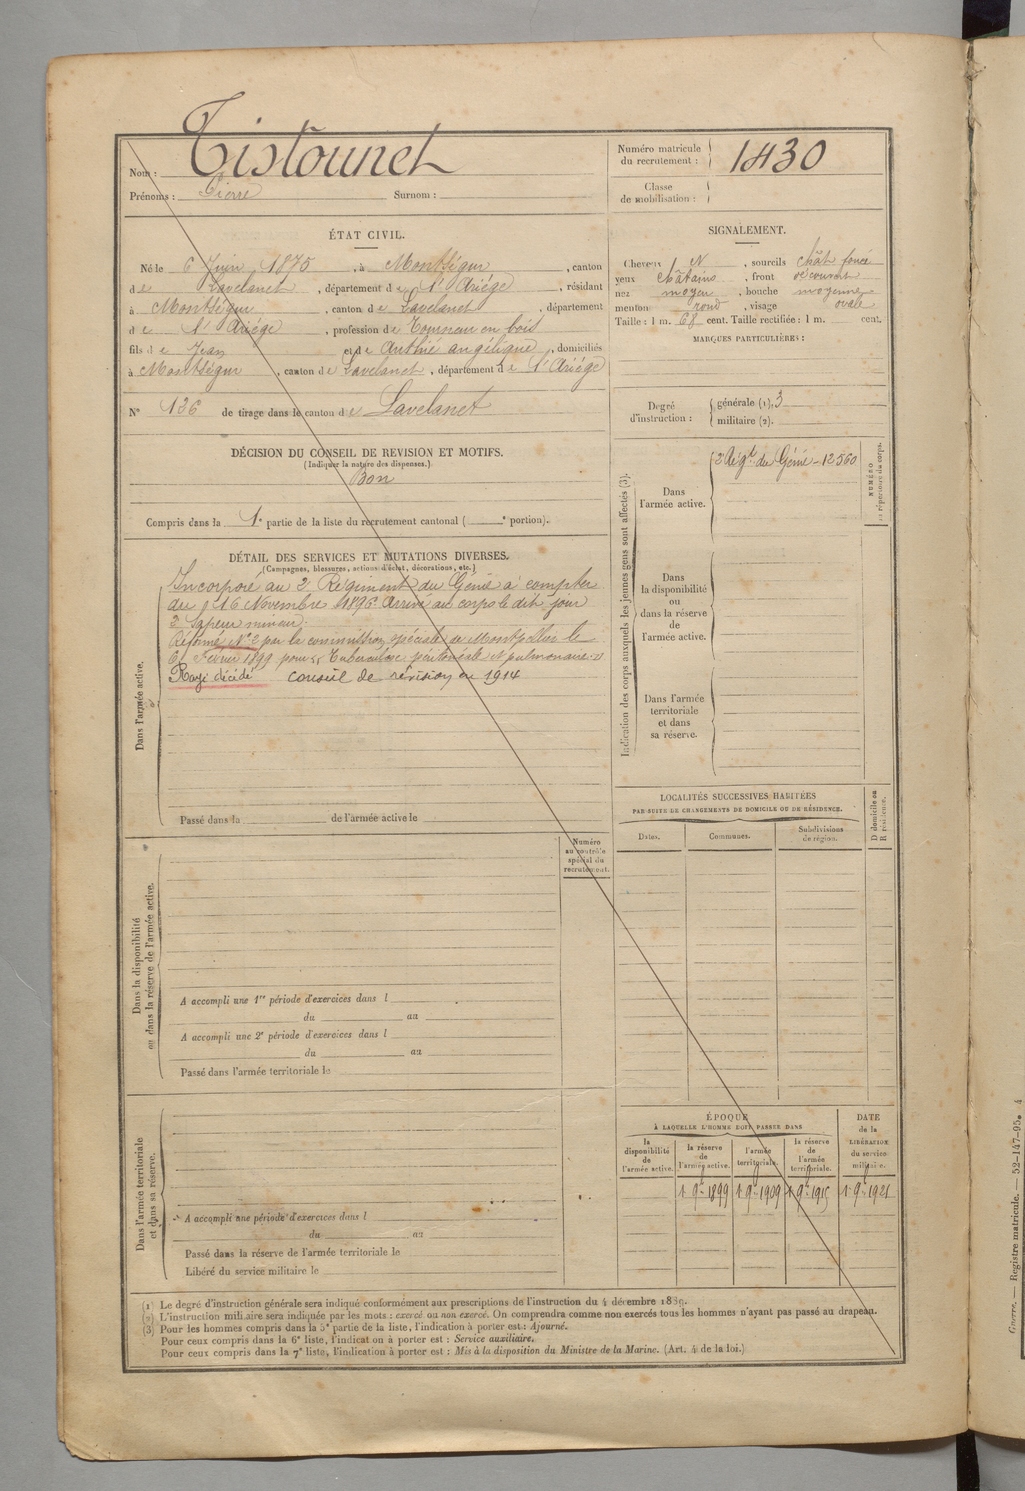 Nom : Tistounet
Prénoms : Pierre Surnom :
Numéro matricule du recrutement : 1430
Classe de mobilisation :
ÉTAT CIVIL.
Né le 6 Juin 1875, à Montségur, canton
de Lavelanet, département de l'Ariége, résidant
à Montségur, canton de Lavelanet, département
de l'Ariége, profession de Tourneur en bois
fils de Jean et de Authié angélique, domiciliés
à Montségur, canton de Lavelanet, département de l'Ariége
N° 136 de tirage dans le canton de Lavelanet
SIGNALEMENT.
Cheveux N, sourcils chât foncé
yeux châtains, front découvert
nez moyen, bouche moyenne
menton rond, visage ovale
Taille : 1 m. 68 cent. Taille rectifiée : 1 m. cent.
MARQUES PARTICULIÈRES :
Degré d'instruction : générale (1). 3
militaire (2).
DÉCISION DU CONSEIL DE REVISION ET MOTIFS.
(Indiquer la nature des dispenses.)
Bon
Compris dans la 1e partie de la liste du recrutement cantonal ( e portion).
DÉTAIL DES SERVICES ET MUTATIONS DIVERSES.
(Campagnes, blessures, actions d'éclat, décorations, etc.)
Dans l'armée active.
Incorporé au 2 Régiment du Génie à compter
du 16 Novembre 1896 Arrivé au corps le dit jour
2 Sapeur mineur.
Réformé N° 2 par la commission spéciale de Montpellier le
6 Février 1899 pour Tuberculose péritonéale et pulmonaire
Rayé décédé conseil de révision en 1914
Passé dans la de l'armée active le
Indication des corps auxquels les jeunes gens sont affectés (3).
Dans l'armée active.
2 Régt du Génie - 12560
NUMÉRO au répertoire du corps.
Dans la disponibilité ou dans la réserve de l'armée active.
Dans l'armée territoriale et dans sa réserve.
LOCALITÉS SUCCESSIVES HABITÉES
PAR SUITE DE CHANGEMENTS DE DOMICILE OU DE RÉSIDENCE.
Dates. Communes. Subdivisions de région. D domicile ou R résidence.
Dans la disponibilité ou dans la réserve de l'armée active.
Numéro au contrôle spécial du recrutement.
A accompli une 1re période d'exercices dans l
du au
A accompli une 2e période d'exercices dans l
du au
Passé dans l'armée territoriale le
Dans l'armée territoriale et dans sa réserve.
A accompli une période d'exercices dans l
du au
Passé dans la réserve de l'armée territoriale le
Libéré du service militaire le
ÉPOQUE
À LAQUELLE L'HOMME DOIT PASSER DANS
la disponibilité de l'armée active. la réserve de l'armée active. l'armée territoriale. la réserve de l'armée territoriale.
DATE de la LIBÉRATION du service militaire.
1 9e 1899 1 9e 1909 1 9e 1915 1 9e 1921
(1) Le degré d'instruction générale sera indiqué conformément aux prescriptions de l'instruction du 4 décembre 1889.
(2) L'instruction militaire sera indiquée par les mots : exercé ou non exercé. On comprendra comme non exercés tous les hommes n'ayant pas passé au drapeau.
(3) Pour les hommes compris dans la 5e partie de la liste, l'indication à porter est : Ajourné.
Pour ceux compris dans la 6e liste, l'indication à porter est : Service auxiliaire.
Pour ceux compris dans la 7e liste, l'indication à porter est : Mis à la disposition du Ministre de la Marine. (Art. 4 de la loi.)
Guerre. — Registre matricule. — 52-147-95. 4